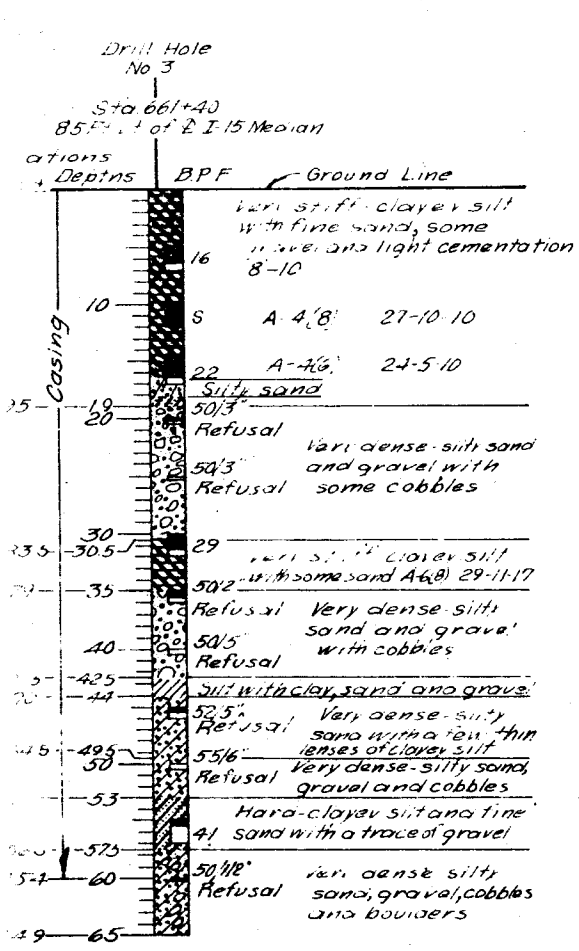 Drill Hole
No 3
Sta 661+40
of ℄ I-15 Median
Depths B.P.F Ground Line
Very stiff-clayey silt
with fine sand, some
gravel and light cementation
16
8'-10
10
S A-4(8) 27-10-10
Casing
22 A-4(6) 24-5-10
Silty sand
19 50/3"
20 Refusal
Very dense-silty sand
and gravel with
some cobbles
50/3"
Refusal
30
30.5 29
Very stiff clayey silt
with some sand A-6(8) 29-11-17
35 50/2"
Refusal Very dense-silty
sand and gravel
with cobbles
40 50/5"
Refusal
42.5
Silt with clay, sand and gravel
44
52/5"
Refusal Very dense-silty
sand with a few thin
lenses of clayey silt
49.5 55/6"
50 Refusal Very dense-silty sand,
gravel and cobbles
53
Hard-clayey silt and fine
41 sand with a trace of gravel
57.5
60 50/1/2"
Refusal Very dense silty
sand, gravel, cobbles
and boulders
65